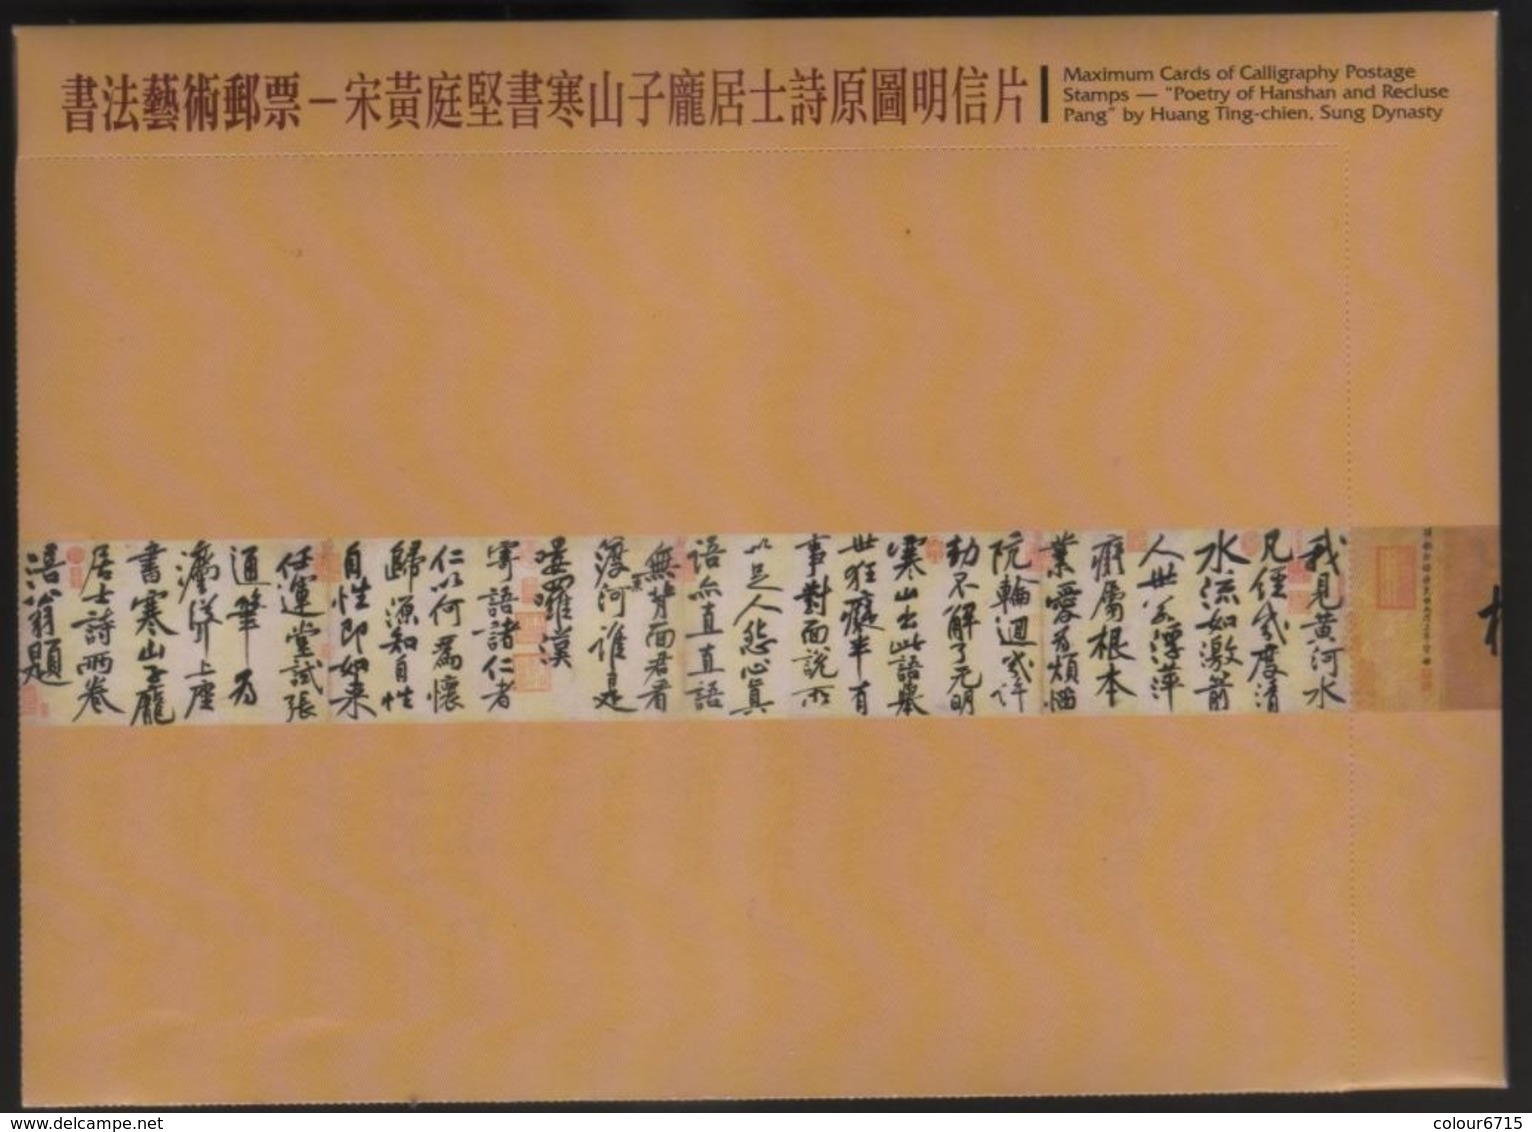 書法藝術郵票－宋黃庭堅書寒山子龐居士詩原圖明信片
Maximum Cards of Calligraphy Postage
Stamps — "Poetry of Hanshan and Recluse
Pang" by Huang Ting-chien, Sung Dynasty
我見黃河水
凡經幾度清
水流如激箭
人世若浮萍
癡屬根本
業愛為煩惱
阬輪迴幾許
劫不解了無明
寒山出此語舉
世狂癡半有
事對面說所
以足人怨心真
語亦直直語
無背面君看
渡河誰是
嘍羅漢
寄語諸仁者
仁以何為懷
歸源知自性
自性即如來
任運堂試張
通筆為
法聳上座
書寒山子龐
居士詩兩卷
涪翁題
delcampe.net
colour6715